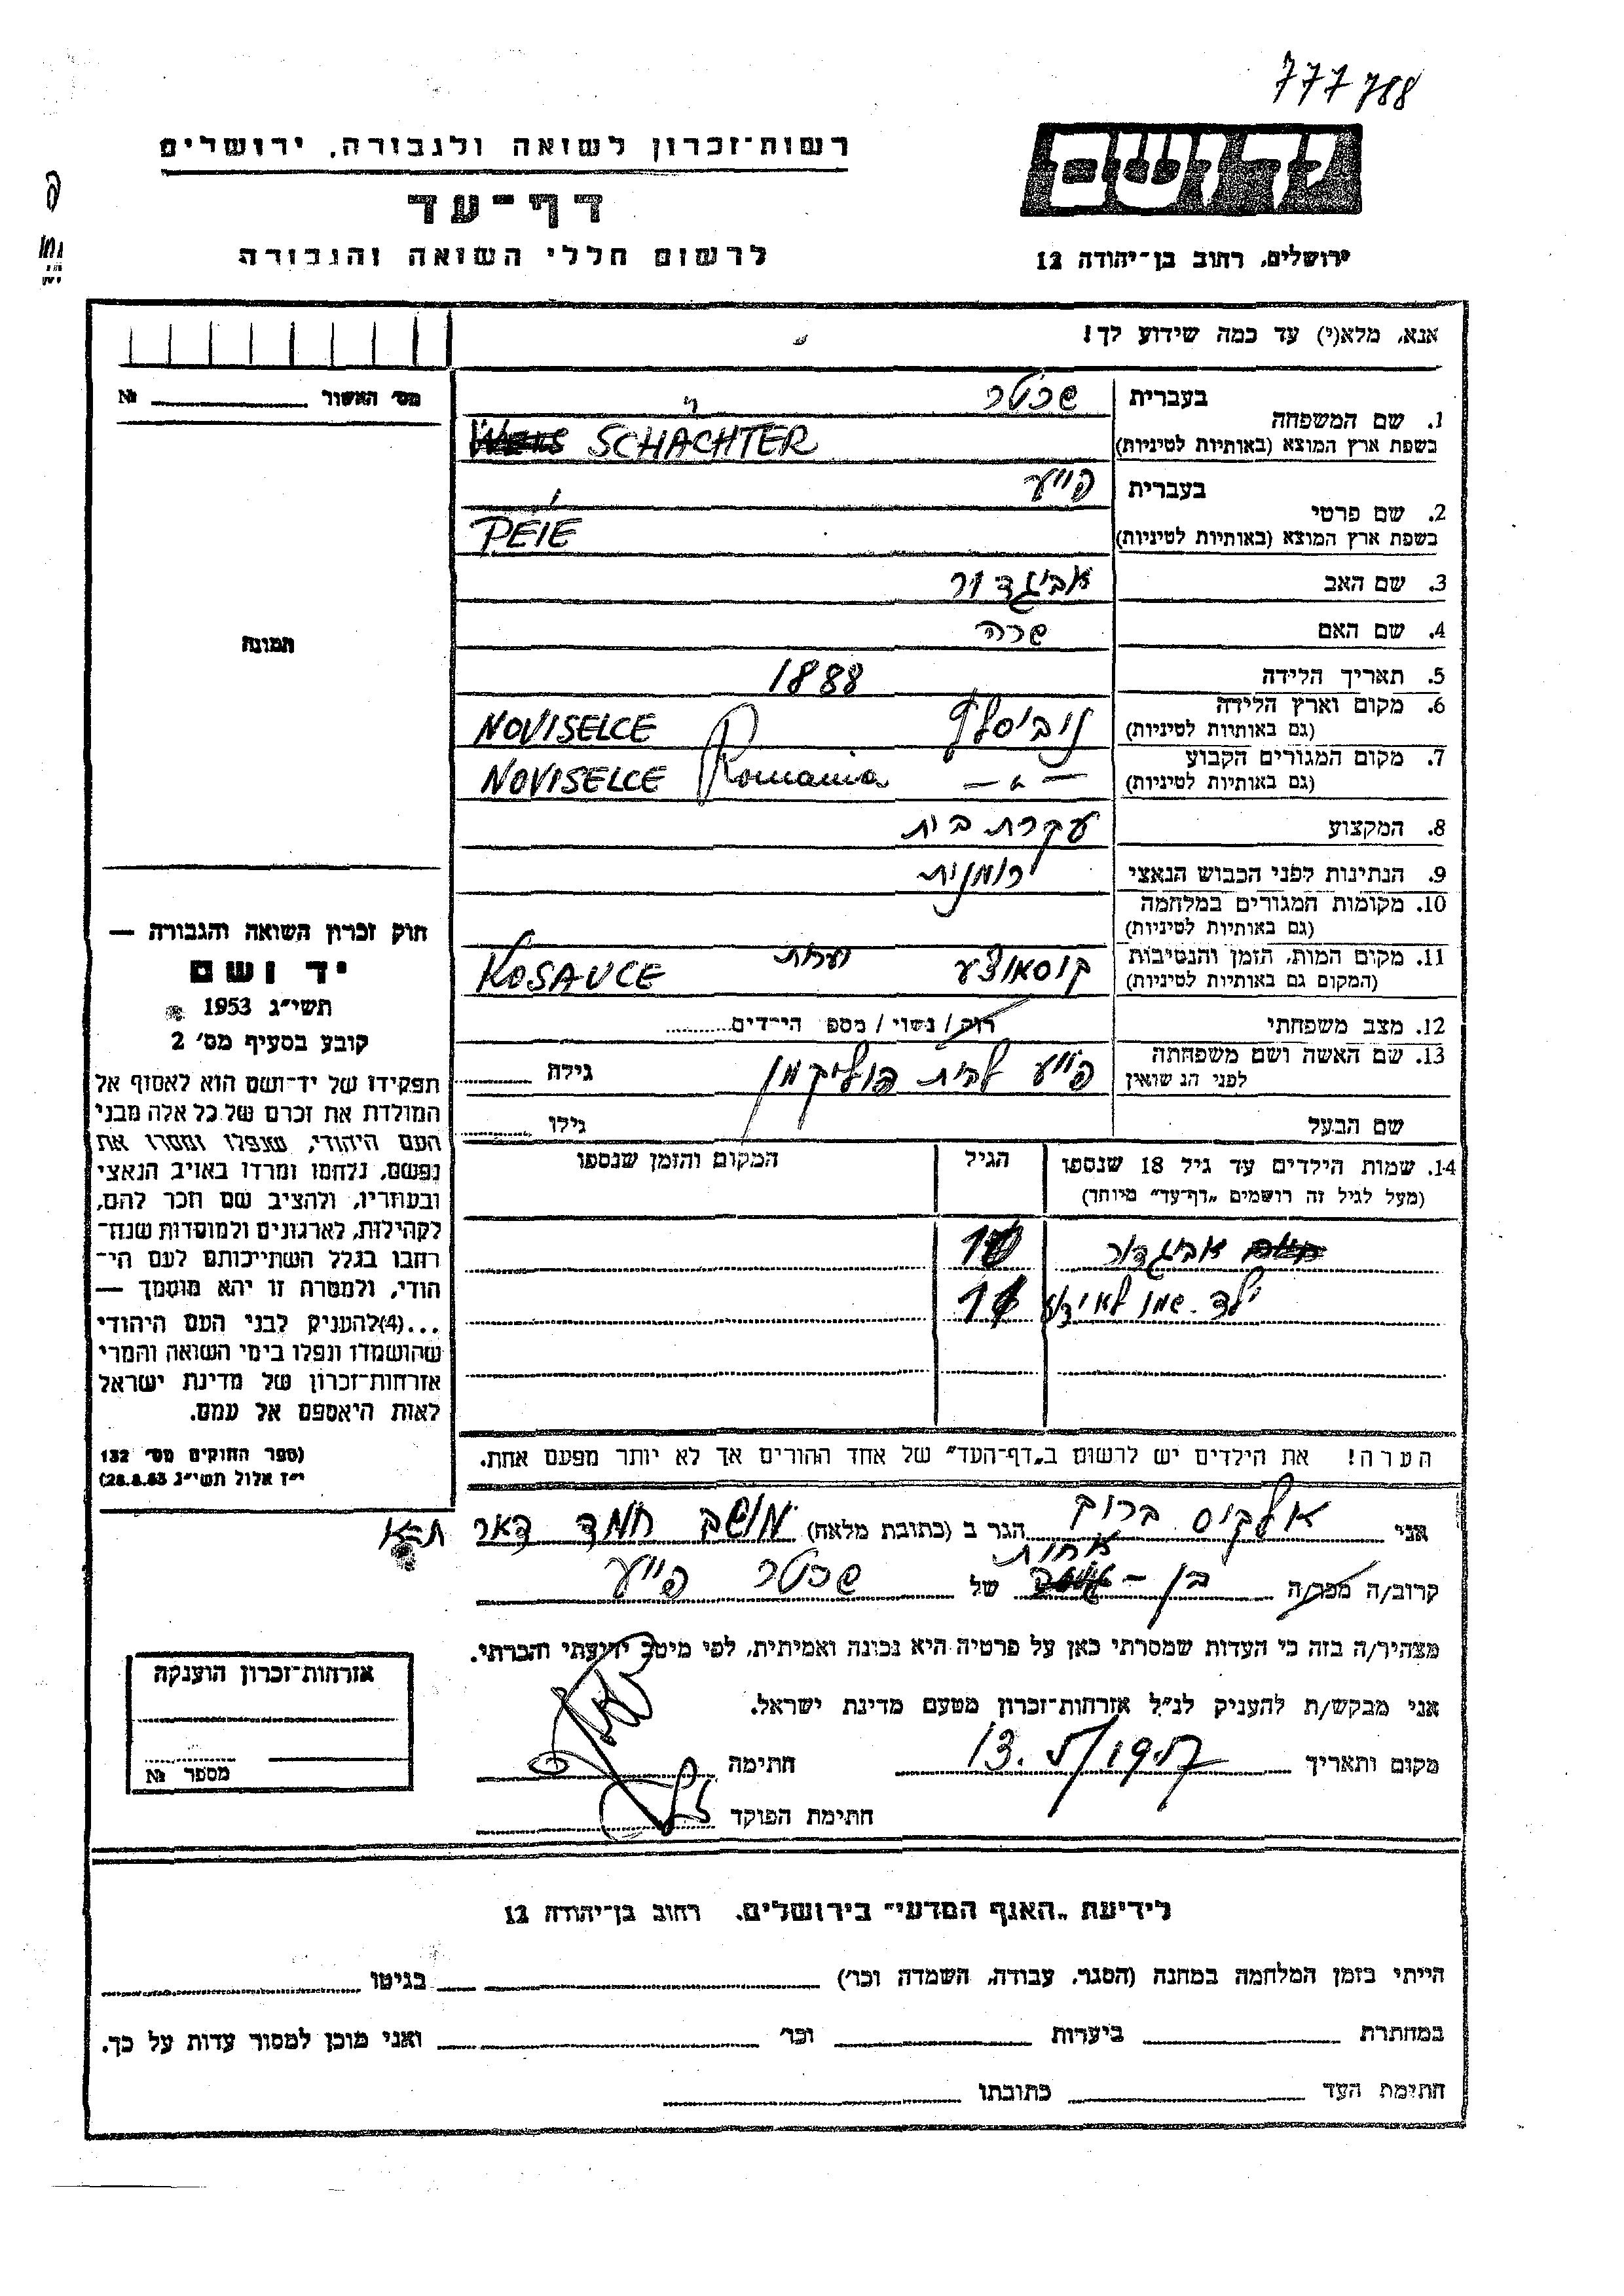 777788
יד ושם
רשות־זכרון לשואה ולגבורה, ירושלים
דף־עד
לרשום חללי השואה והגבורה
ירושלים, רחוב בן־יהודה 12
אנא, מלא(י) עד כמה שידוע לך!
מס׳ האשור № 
1. שם המשפחה
בעברית שכטר
בשפת ארץ המוצא (באותיות לטיניות) SCHACHTER
2. שם פרטי
בעברית פייע
בשפת ארץ המוצא (באותיות לטיניות) PEIE
3. שם האב אביגדור
4. שם האם שרה
5. תאריך הלידה 1888
6. מקום וארץ הלידה
(גם באותיות לטיניות) NOVISELCE
7. מקום המגורים הקבוע
(גם באותיות לטיניות) NOVISELCE Romania
8. המקצוע עקרת בית
9. הנתינות לפני הכבוש הנאצי רומנית
10. מקומות המגורים במלחמה
(גם באותיות לטיניות)
11. מקום המות, הזמן והנסיבות
(המקום גם באותיות לטיניות) קוסאוצע יערות KOSAUCE
12. מצב משפחתי רוק/נשוי/מספ הילדים
13. שם האשה ושם משפחתה
לפני הנשואין פייע לבית גילה
שם הבעל גילו
14. שמות הילדים עד גיל 18 שנספו הגיל המקום והזמן שנספו
(מעל לגיל זה רושמים „דף־עד״ מיוחד)
אביגדור
ילד. שמו לא ידוע
הערה! את הילדים יש לרשום ב„דף־העד״ של אחד ההורים אך לא יותר מפעם אחת.
תמונה
חוק זכרון השואה והגבורה —
יד ושם
תשי״ג 1953
קובע בסעיף מס׳ 2
תפקידו של יד־ושם הוא לאסוף אל
המולדת את זכרם של כל אלה מבני
העם היהודי, שנפלו ומסרו את
נפשם, נלחמו ומרדו באויב הנאצי
ובעוזריו, ולהציב שם וזכר להם,
לקהילות, לארגונים ולמוסדות שנח־
רבו בגלל השתייכותם לעם הי־
הודי, ולמטרה זו יהא מוסמך —
...(4) להעניק לבני העם היהודי
שהושמדו ונפלו בימי השואה והמרי
אזרחות־זכרון של מדינת ישראל
לאות היאספם אל עמם.
(ספר החוקים מס׳ 132
י״ז אלול תשי״ג 28.8.53)
אני אלקיס ברוך הגר ב (כתובת מלאה) מושב חמד דאר ת־א
קרוב/ה מכר/ה בן - אחות של שכטר פייע
מצהיר/ה בזה כי העדות שמסרתי כאן על פרטיה היא נכונה ואמיתית, לפי מיטב ידיעתי והכרתי.
אני מבקש/ת להעניק לנ״ל אזרחות־זכרון מטעם מדינת ישראל.
מקום ותאריך 13.5/1957 חתימה
חתימת הפוקד
אזרחות־זכרון הוענקה
מספר №
לידיעת „האגף המדעי״ בירושלים, רחוב בן־יהודה 12
הייתי בזמן המלחמה במחנה (הסגר, עבודה, השמדה וכו׳) בגיטו
במחתרת ביערות וכו׳ ואני מוכן למסור עדות על כך.
חתימת העד כתובתו